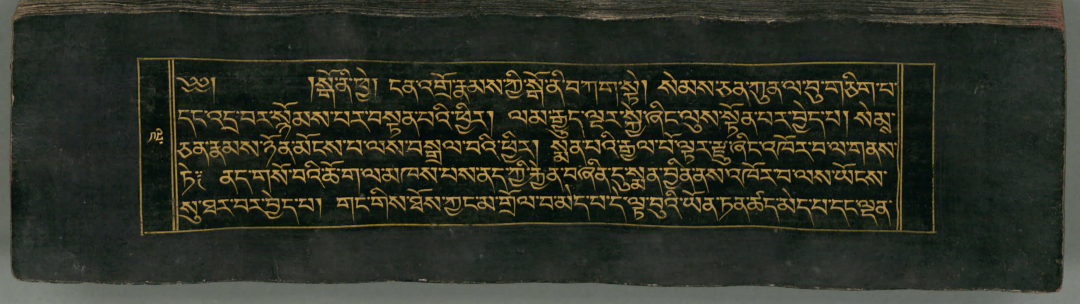 ༄༅། །སྒོ་ནི་ཕྱེ། ངན་འགྲོ་རྣམས་ཀྱི་སྒོ་ནི་བཀག་སྟེ། སེམས་ཅན་ཀུན་ལ་བུ་གཅིག་པ་
དང་འདྲ་བར་སྙོམས་པར་བསྟན་པའི་ཕྱིར། ལམ་རྒྱུད་ལྔར་སྐྱེ་ཞིང་ལུས་སྟོན་པར་བྱེད་པ། སེམྶ་
ཅན་རྣམས་ཉོན་མོངས་པ་ལས་བསྒྲལ་བའི་ཕྱིར། སྨན་པའི་རྒྱལ་པོ་ལྟར་རྫུ་ཞིང་འཁོར་བ་ལ་གནས་
ཏེ༔ ནད་གསོ་བའི་ཆོ་ག་ལ་མཁས་པས་ནད་ཀྱི་རྐྱེན་བཞིན་དུ་སྨན་བྱིན་ནས་འཁོར་བ་ལས་ཡོངས་
སུ་ཐར་པར་བྱེད་པ། གང་གིས་ཐོས་ཀྱང་མ་གྲོལ་བ་མེད་པ་དེ་ལྟ་བུའི་ཡོན་ཏན་ཚད་མེད་པ་དང་ལྡན་